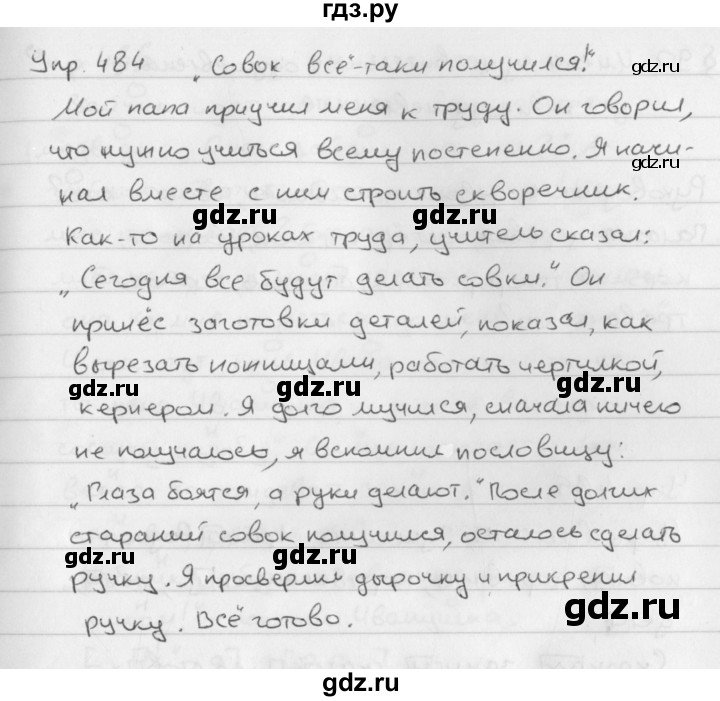 гдз.ру
Упр. 484 „Совок всё-таки получился!“
Мой папа приучил меня к труду. Он говорил,
что нужно учиться всему постепенно. Я начи-
нал вместе с ним строить скворечник.
gdz.ru gdz.ru
Как-то на уроках труда, учитель сказал:
„Сегодня все будут делать совки.“ Он
принёс заготовки деталей, показал, как
вырезать ножницами, работать чертилкой,
gdz.ru gdz.ru gdz.ru
кернером. Я долго мучился, сначала ничего
не получалось, я вспомнил пословицу:
„Глаза боятся, а руки делают.“ После долгих
стараний совок получился, осталось сделать
gdz.ru gdz.ru
ручку. Я просверлил дырочку и прикрепил
gdz.ru
ручку. Всё готово.
gdz.ru